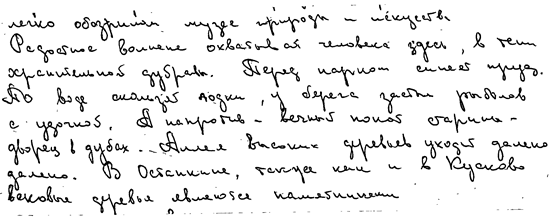 легко обозримый музее природы и искусств.
Радостное волнение охватывает человека здесь, в тени
хранительной дубравы. Перед парком синеет пруд.
По воде скользят лодки, у берега застыл рыболов
с удочкой. А напротив - вечный покой старины -
дворец в дубах... Аллея высоких деревьев уходит далеко
далеко. В Останкине, также как и в Кусково
вековые деревья являются памятниками